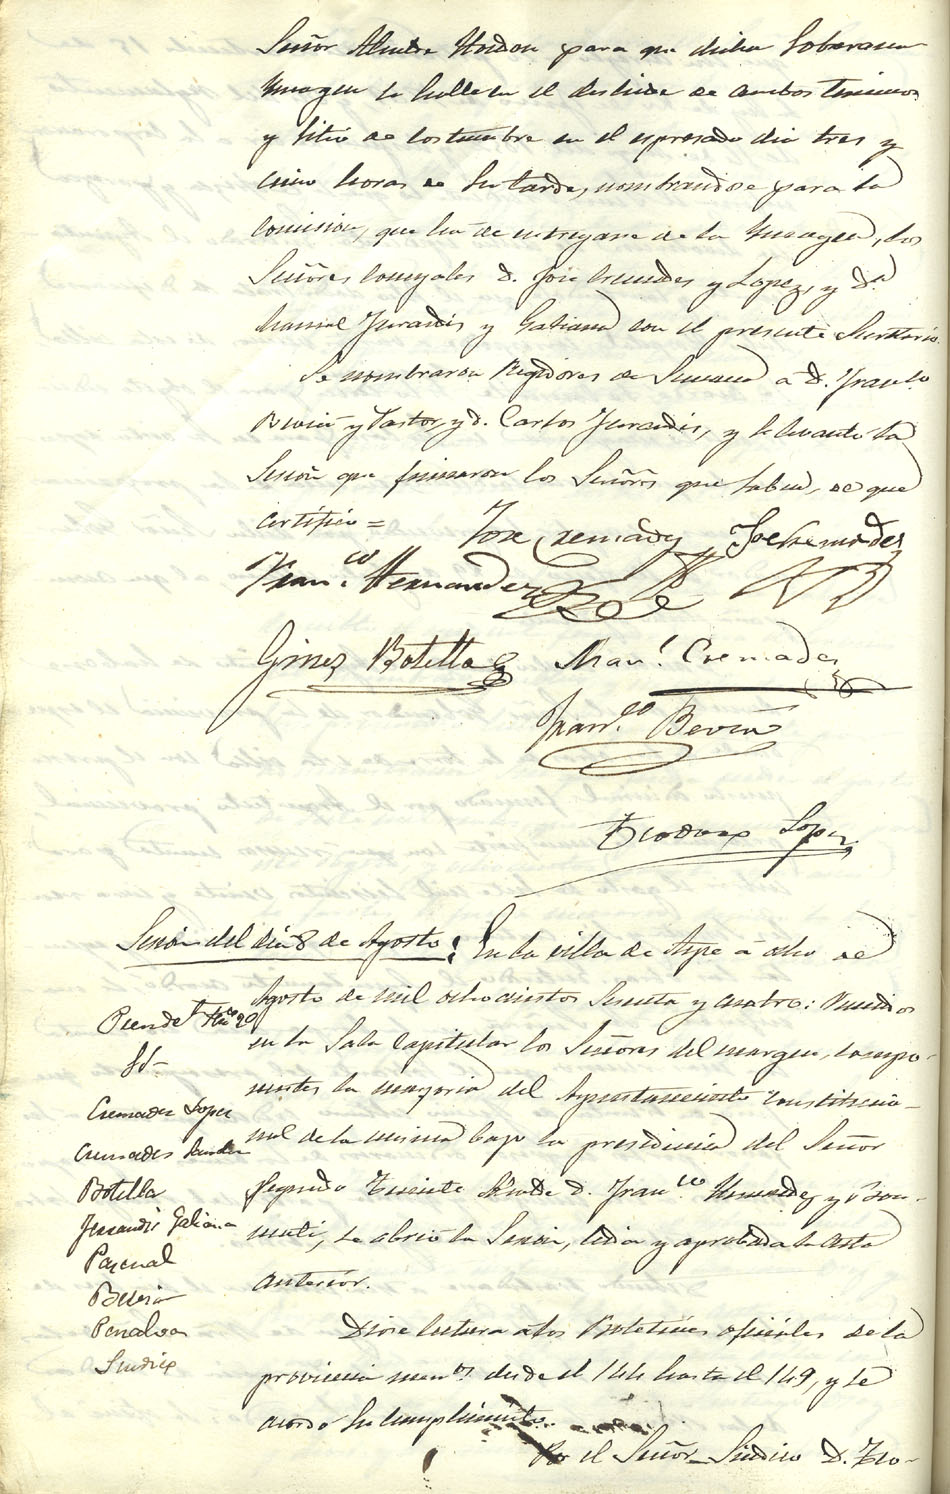 Señor Alcalde Mordon para que dicha Soberana
Ymagen se halle en el deslinde de ambos terminos
y sitio de costumbre en el espresado dia tres y
cinco horas de su tarde, nombrandose para la
comision, que ha de entregarse de la Ymagen, los
Señores Concejales D. Jose Cremades y Lopez, y D.n
Manuel Jurandis y Galiana con el presente Secretario.
Se nombraron Regidores de Semana á D. Fran.co
Beviá y Pastor, y D. Carlos Jurandis, y se levanto la
Sesion que firmaron los Señores que saben, de que
certifico =
Jose Cremades Jose Cremades
Fran.co Hernandez
Gines Botella Man.l Cremades
Fran.co Beviá
Teodoro Lopez
Sesion del dia 8 de Agosto. En la villa de Aspe á ocho de
Agosto de mil ochocientos sesenta y cuatro: Reunidos
en la Sala Capitular los Señores del margen, compo-
nentes la mayoria del Ayuntamiento Constitucio-
nal de la misma bajo la presidencia del Señor
Segundo Teniente Alcalde D. Fran.co Hernandez y
se abrio la Sesion, leida y aprobada la acta
anterior.
Presidente
SS.
Cremades Lopez
Cremades
Botella
Jurandis Galiana
Pascual
Beviá
Penalva
Sindico
Diose lectura a los Boletines oficiales de la
provincia desde el 144 hasta el 149, y se
acordo su cumplimiento.
Por el Señor Sindico D. Teo-